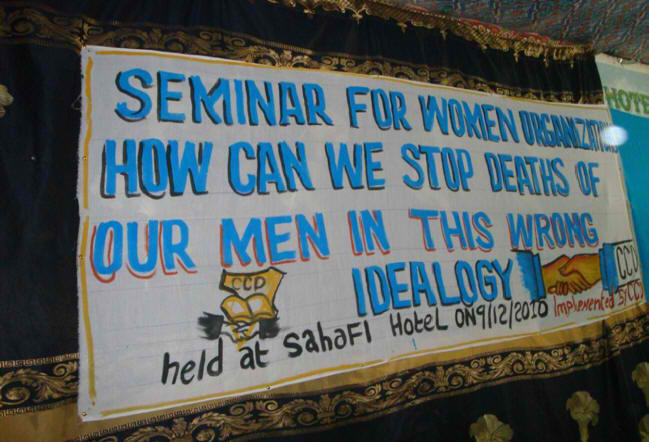 SEMINAR FOR WOMEN ORGANIZATION
HOW CAN WE STOP DEATHS OF
OUR MEN IN THIS WRONG
IDEALOGY
CCD
CCD
held at SahaFI HoteL ON 9/12/2010 Implemented by CCD
HOTEL